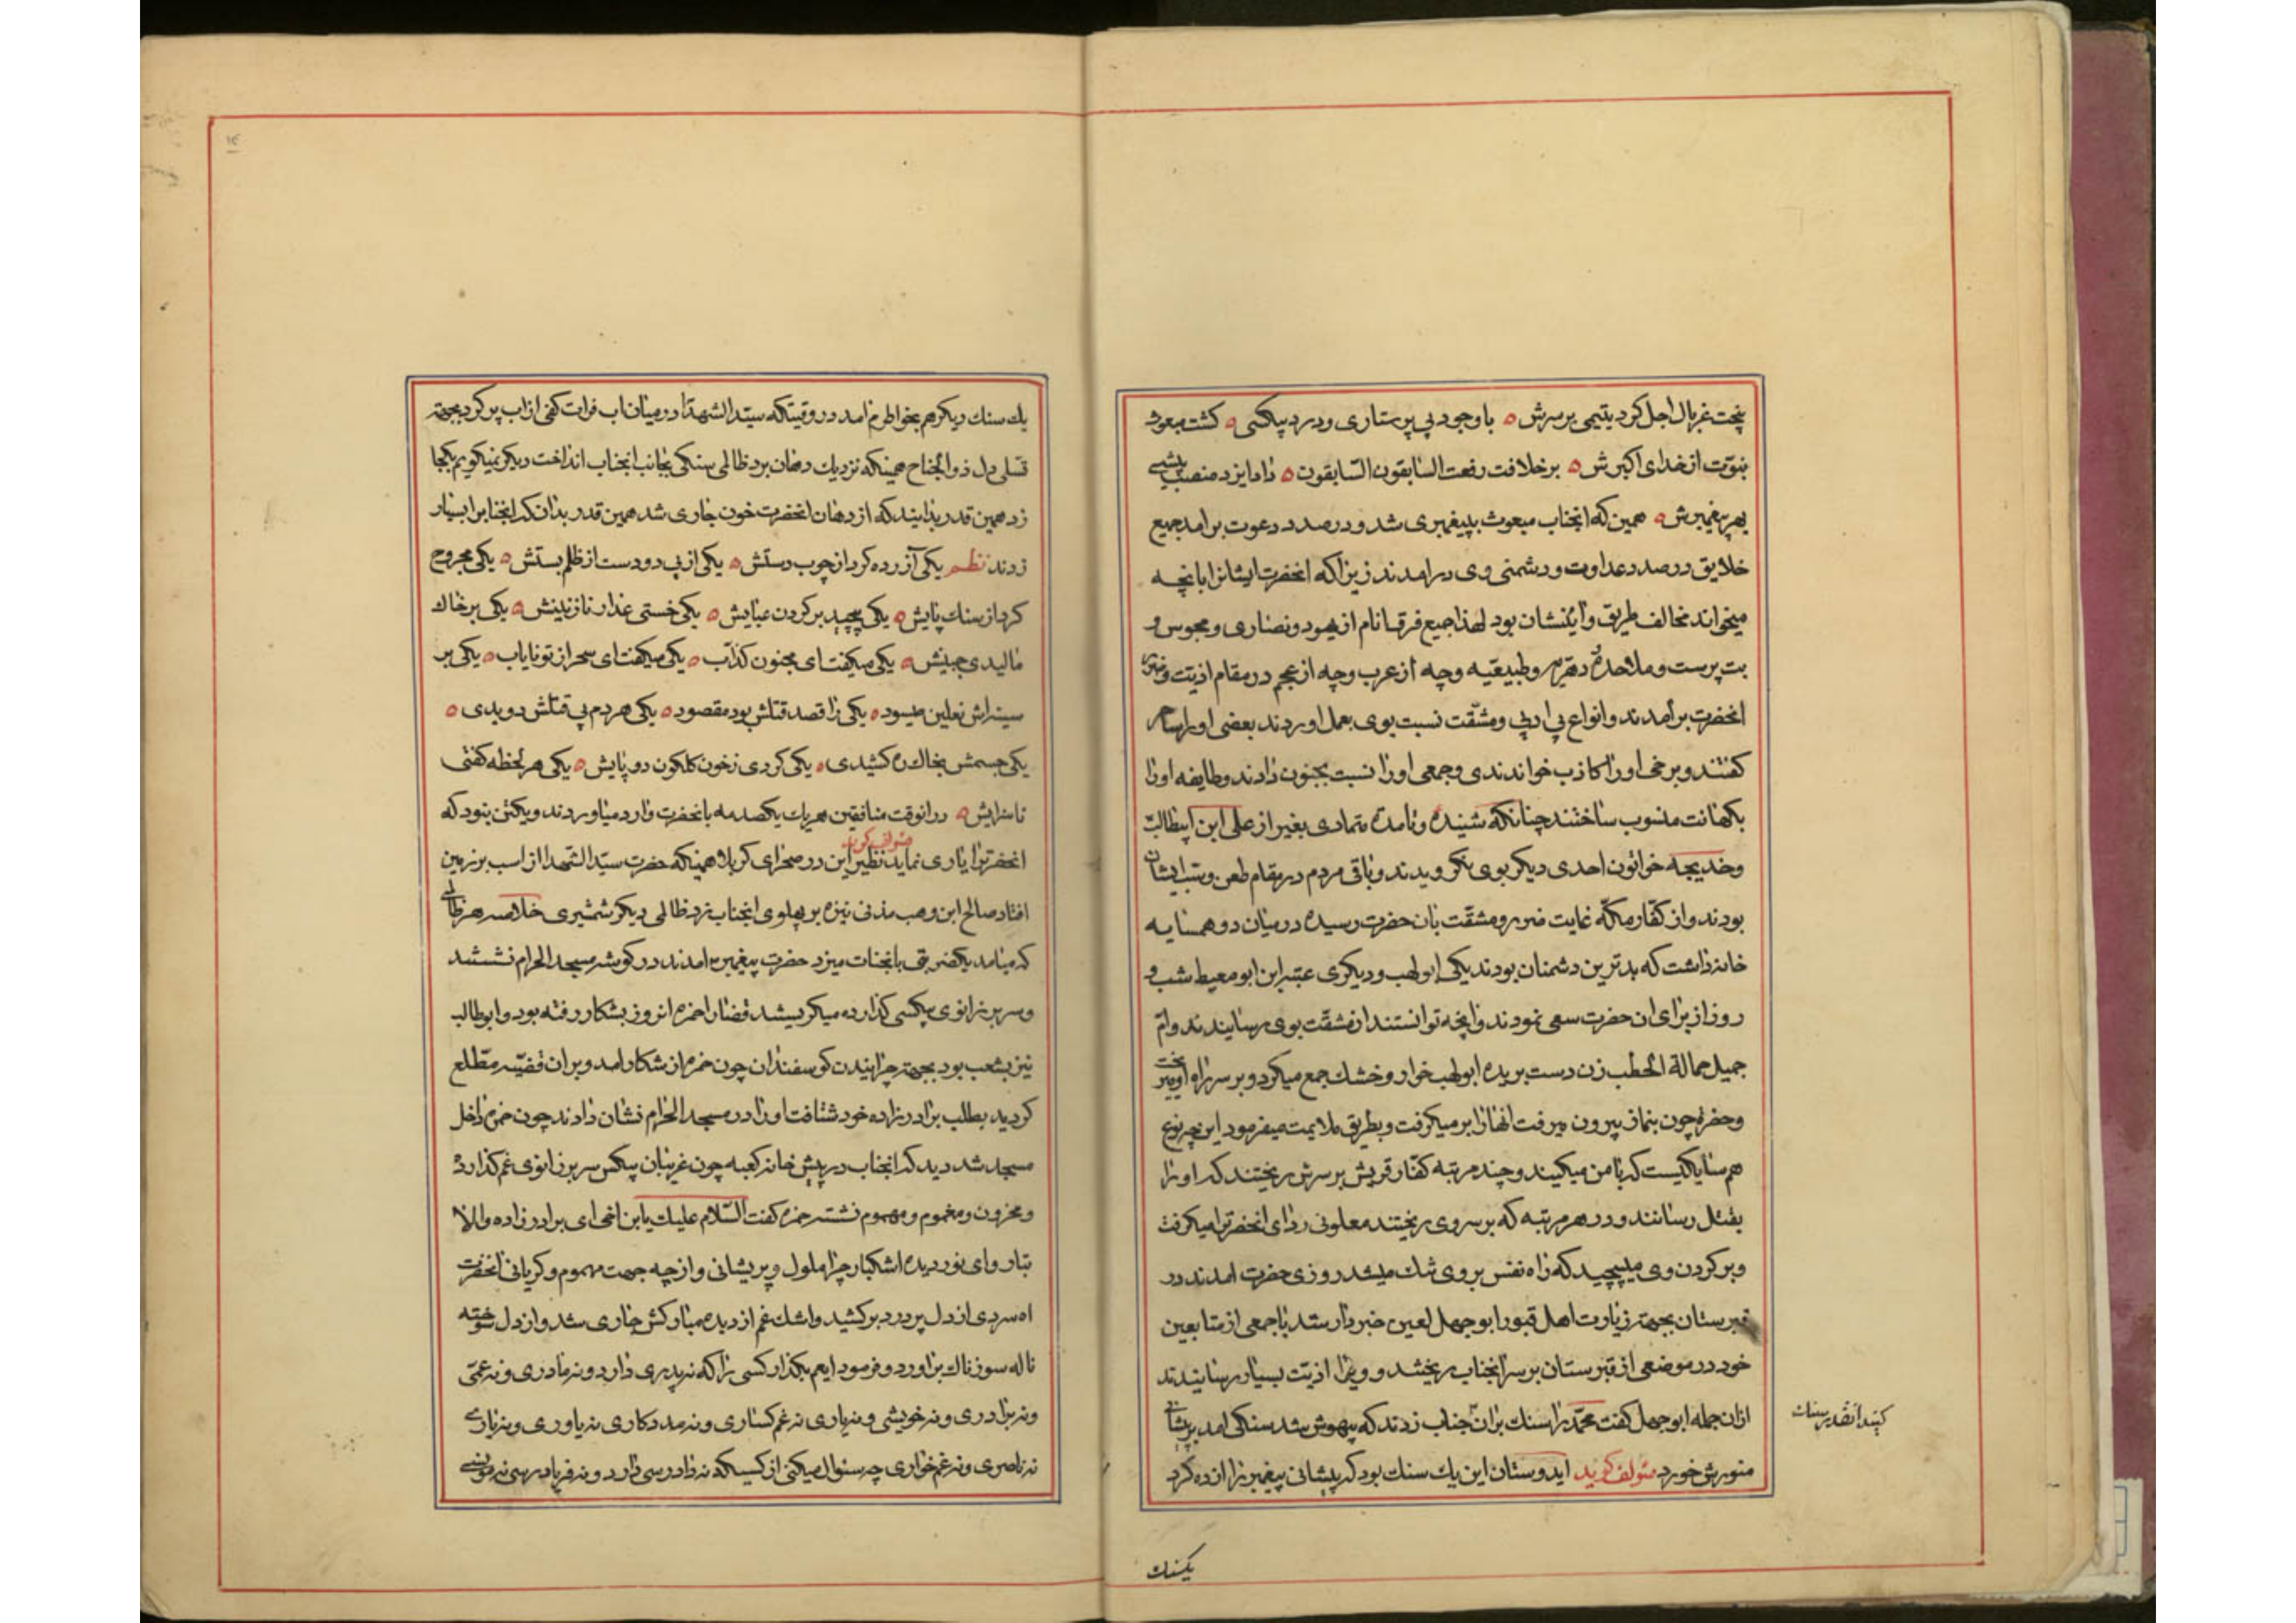 پنجت غربال اجل کرد یتیمی بر سرش ه با وجود بی پرستاری و درد بیکسی ه کشت مبعوث
بنوّت از خدای اکبرش ه بر خلافت رفعت السابقون السّابقون ه داد ایزد منصب پیشی
بهر پیغمبرش ه همین که انجناب مبعوث بپیغمبری شد و در صدد دعوت برامد جمیع
خلایق در صدد عداوت و دشمنی وی درامدند زیرا که انحضرت ایشانرا بانچه
میخواند مخالف طریق و ائینشان بود لهذا جمیع فرق انام از یهود و نصاری و مجوس و
بت پرست و ملاحده و دهریه و طبیعیه و چه از عرب و چه از عجم در مقام اذیت و ضرر
انحضرت برامدند و انواع بی ادبی و مشقّت نسبت بوی بعمل اوردند بعضی او را ساحر
کفتند و برخی او را کاذب خواندندی و جمعی او را نسبت بجنون دادند و طایفه او را
بکهانت منسوب ساختند چنانکه شنیده و نامده تمادی بغیر از علی ابن ابیطالب
و خدیجه خواتون احدی دیکر بوی نکرویدند و باقی مردم در مقام طعن و سب ایشان
بودند و از کفّار مکّه غایت ضرر و مشقّت بان حضرت رسیده در میان دو همسایه
خانه داشت که بدترین دشمنان بودند یکی ابو لهب و دیکری عتبه ابن ابو معیط شب و
روز از برای ان حضرت سعی نمودند و انچه توانستند از مشقّت بوی رسانیدند و امّ
جمیل حمالة الحطب زن دست بریده ابو لهب خوار و خشک جمع میکرد و بر سر راه او میریخت
و حضرة چون بنماز بیرون میرفت انها را بر میکرفت و بطریق ملایمت میفرمود این چه نوع
همسایکیست که با من میکیند و چند مرتبه کفّار قریش بر سرش ریختند که او را
بقتل رسانند و در هر مرتبه که بر سر وی ریختند معلونی ردای انحضرترا میکرفت
و بر کردن وی میپیچید که راه نفس بر وی تنک میشد روزی حضرت امدند در
قبرستان بجهة زیارت اهل قبور ابو جهل لعین خبردار شد با جمعی از متابعین
خود در موضعی از قبرستان بر سر انجناب ریختند و ویرا اذیّت بسیار رسانیدند
ازان جمله ابو جهل کفت محمّد را سنک بران جناب زدند که بیهوش شد سنکی امد بر پیشانی
منورش خورد مئولف کوید ایدوستان این یک سنک بود که پیشانی پیغمبر را ازرده کرد
کنید انقدر سنک
یکسنک
۱۴
یک سنک دیکر هم بخواطرم امد در وقتیکه سیّد الشهدا در میان اب فرات کفی از اب پر کرد بجهة
تسلی دل ذو الجناح همینکه نزدیک دهان برد ظالمی سنکی بجانب انجناب انداخت دیکر نمیکویم بکجا
زد همین قدر بدانید که از دهان انحضرت خون جاری شد همین قدر بدان که انجنابرا بسیار
زدند نظم یکی آزرده کرد از چوب دستش ه یکی از پی دو دست از ظلم بستش ه یکی مجروح
کرد از سنک پایش ه یکی پیچید بر کردن عبایش ه یکی خستی عذار نازنینش ه یکی بر خاک
مالیدی جبینش ه یکی میکفت ای مجنون کذّاب ه یکی میکفت ای سحر از تو نایاب ه یکی بر
سینه اش نعلین میسود ه یکی را قصد قتلش بود مقصود ه یکی هر دم پی قتلش دویدی ه
یکی جسمش بخاک ره کشیدی ه یکی کردی ز خون کلکون دو پایش ه یکی هر لحظه کفتی
ناسزایش ه در انوقت منافقین هر یک یکصدمه بانحضرت وارد میاوردند و یکتن نبود که
مئولف کوید
انحضرترا یاری نماید نظیر این در صحرای کربلا همینکه حضرت سیّد الشّهدا از اسب بر زمین
افتاد صالح ابن وهب مذنی نیزه بر پهلوی انجناب زد ظالمی دیکر شمشیری خلاصه هر ظالمی
که میامد یکضربتی بانجناب میزد حضرت پیغمبر امدند در کوشه مسجد الحرام نشستند
و سر بر زانوی بیکسی کذارده میکریستند قضا را حمزه انروز بشکار رفته بود و ابو طالب
نیز بشعب بود بجهة چرانیدن کوسفندان چون حمزه از شکار امد و بر ان قضیّه مطّلع
کردید بطلب برادر زاده خود شتافت او را در مسجد الحرام نشان دادند چون حمزه داخل
مسجد شد دید که انجناب در پیش خانه کعبه چون غریبان بیکس سر بر زانوی غم کذارده
و محزون و مغموم و مهموم نشسته حمزه کفت السّلام علیک یا بن اخی ای برادر زاده والا
تبار و ای نور دیده اشکبار چرا ملول و پریشانی و از چه جهت مهموم و کریانی انحضرت
اه سردی از دل پر درد برکشید و اشک غم از دیده مبارکش جاری شد و از دل سوخته
ناله سوزناک براورد و فرمود ایعم بکذار کسی را که نه پدری دارد و نه مادری و نه عمّی
و نه برادری و نه خویشی و نه یاری نه غم کساری و نه مددکاری نه یاوری و نه یاری
نه ناصری و نه غم خواری چه سئوال میکنی از کسیکه نه دادرسی دارد و نه فریاد رسی نه مونسی